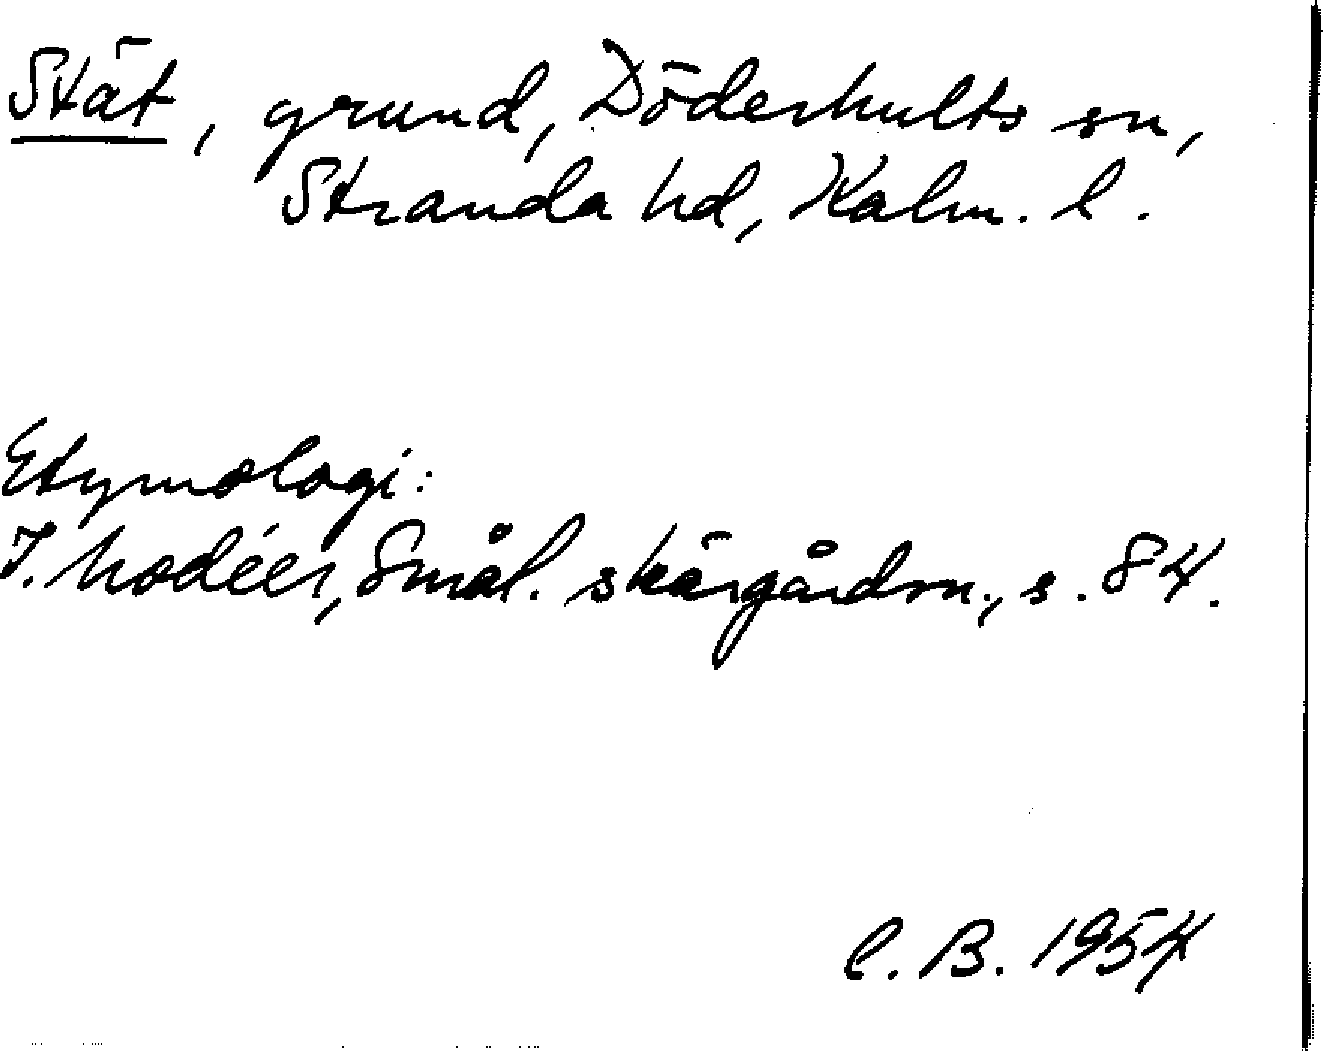 Stät, grund, Döderhults sn,
Stranda hd, Kalm. l.
Etymologi:
I. Modéer, Smål. skärgårdsn., s. 84.
C. B. 1954